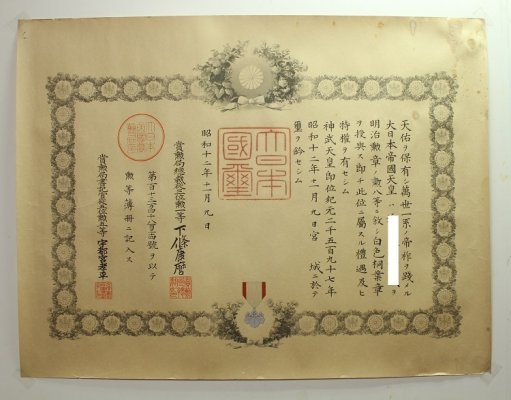 天佑ヲ保有シ萬世一系ノ帝祚ヲ踐
大日本帝國天皇ハ ヲ
明治勲章ノ勲八等ニ敍シ白色桐葉章
ヲ授與ス即チ此位ニ屬スル禮遇及ヒ
特權ヲ有セシム
神武天皇即位紀元二千五百九十七年
昭和十二年十一月九日宮城ニ於テ
璽ヲ鈐セシム
大日本國璽
昭和十二年十一月九日
賞勲局總裁從三位勲一等下條康麿
號ヲ以テ
勲等簿冊ニ記入ス
賞勲局書記官 勲五等宇都宮孝平